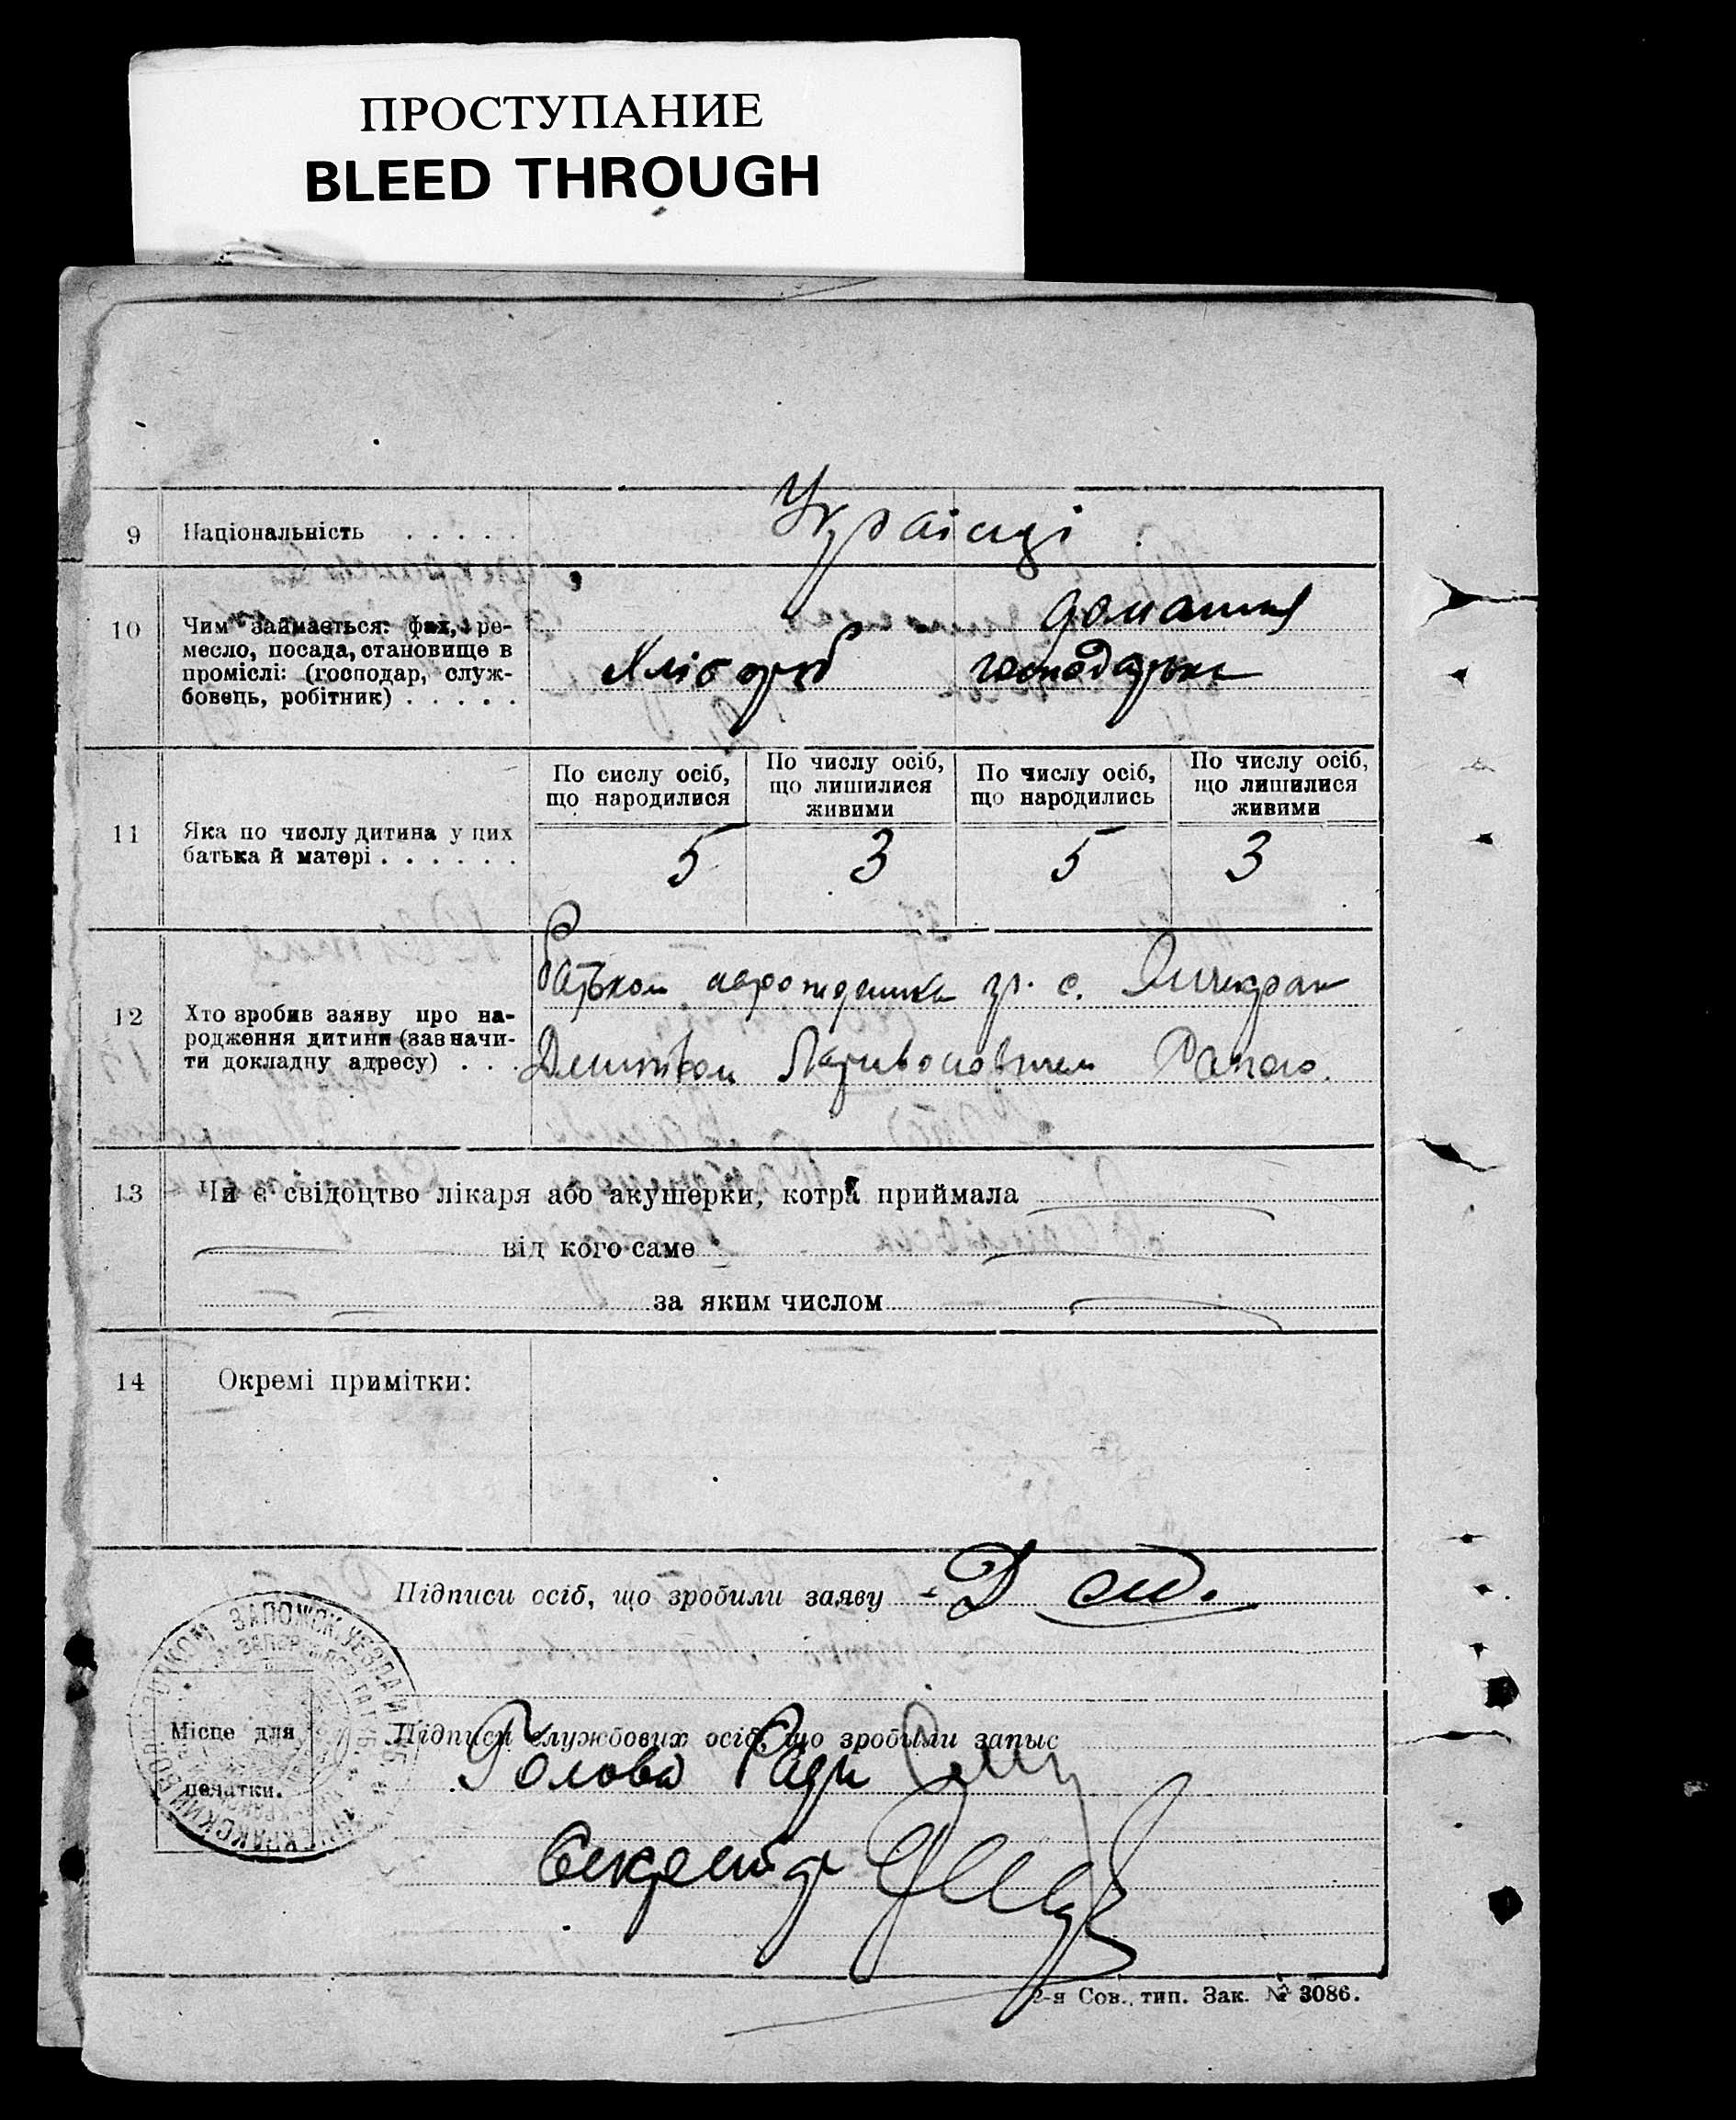 ПРОСТУПАНИЕ
BLEED THROUGH
9 Національність . . . . . Українці
10 Чим займається: фах, ре-
месло, посада, становище в
проміслі: (господар, служ-
бовець, робітник) . . . . .
Хлібороб
домашня
господарка
11 Яка по числу дитина у цих
батька й матері . . . . . .
По сислу осіб,
що народилися
По числу осіб,
що лишилися
живими
По числу осіб,
що народились
По числу осіб,
що лишилися
живими
5 3 5 3
12 Хто зробив заяву про на-
родження дитини (зазначи-
ти докладну адресу) . . .
Батьком гр. с.
13 Чи є свідоцтво лікаря або акушерки, котра приймала
від кого саме
за яким числом
14 Окремі примітки:
Підписи осіб, що зробили заяву
Місце для
печатки.
Підписи службових осіб, що зробили запыс
Голова Ради
Секретар
2-я Сов. тип. Зак. № 3086.